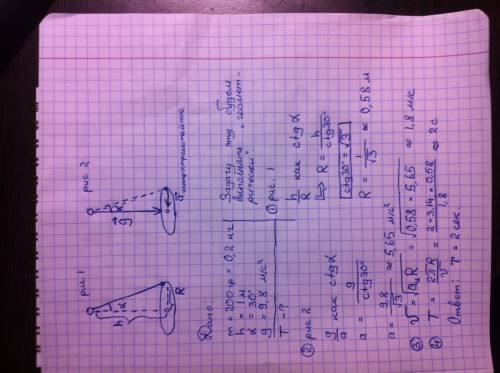 рис 1
рис 2
h
α
R
g
α
a центростремительное
Дано:
m = 200 гр = 0,2 кг
h = 1 м
α = 30°
g = 9,8 м/с²
T - ?
Задачу эту будем
выполнять "геомет-
рически".
① рис. 1
h/R как ctgα
⇒ R = h/ctg30°
ctg30° = √3
R = 1/√3 ≈ 0,58 м
② рис 2
g/a как ctgα
a = g/ctg30°
a = 9,8/√3 ≈ 5,65 м/с²
③ v = √(aцR) = √(0,58 × 5,65) ≈ 1,8 м/с
④ T = 2πR/v = 2 × 3,14 × 0,58/1,8 ≈ 2 с
Ответ: T = 2 сек.